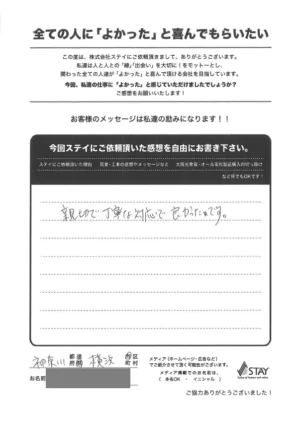 全ての人に「よかった」と喜んでもらいたい
この度は、株式会社ステイにご依頼頂きまして、ありがとうございます。
私達は人と人との「縁」「出会い」を大切に!をモットーとし、
関わった全ての人達が「よかった」と喜んで頂ける会社を目指しています。
今回、私達の仕事に「よかった」と感じていただけましたでしょうか?
ご感想をお願いいたします!
お客様のメッセージは私達の励みになります!!
今回ステイにご依頼頂いた感想を自由にお書き下さい。
ステイにご依頼頂いた理由 営業・工事の感想やメッセージなど 太陽光発電・オール電化製品購入のきっかけ
など何でもOKです!
親切で丁寧な対応で良かったです。
神奈川 都道府県 横浜 市区町村
お名前
メディア(ホームページ・広告など)
でご紹介させて頂く可能性がございます。
メディア掲載でのお名前は、
( 本名OK ・ イニシャル )
STAY
ご協力ありがとうございました!